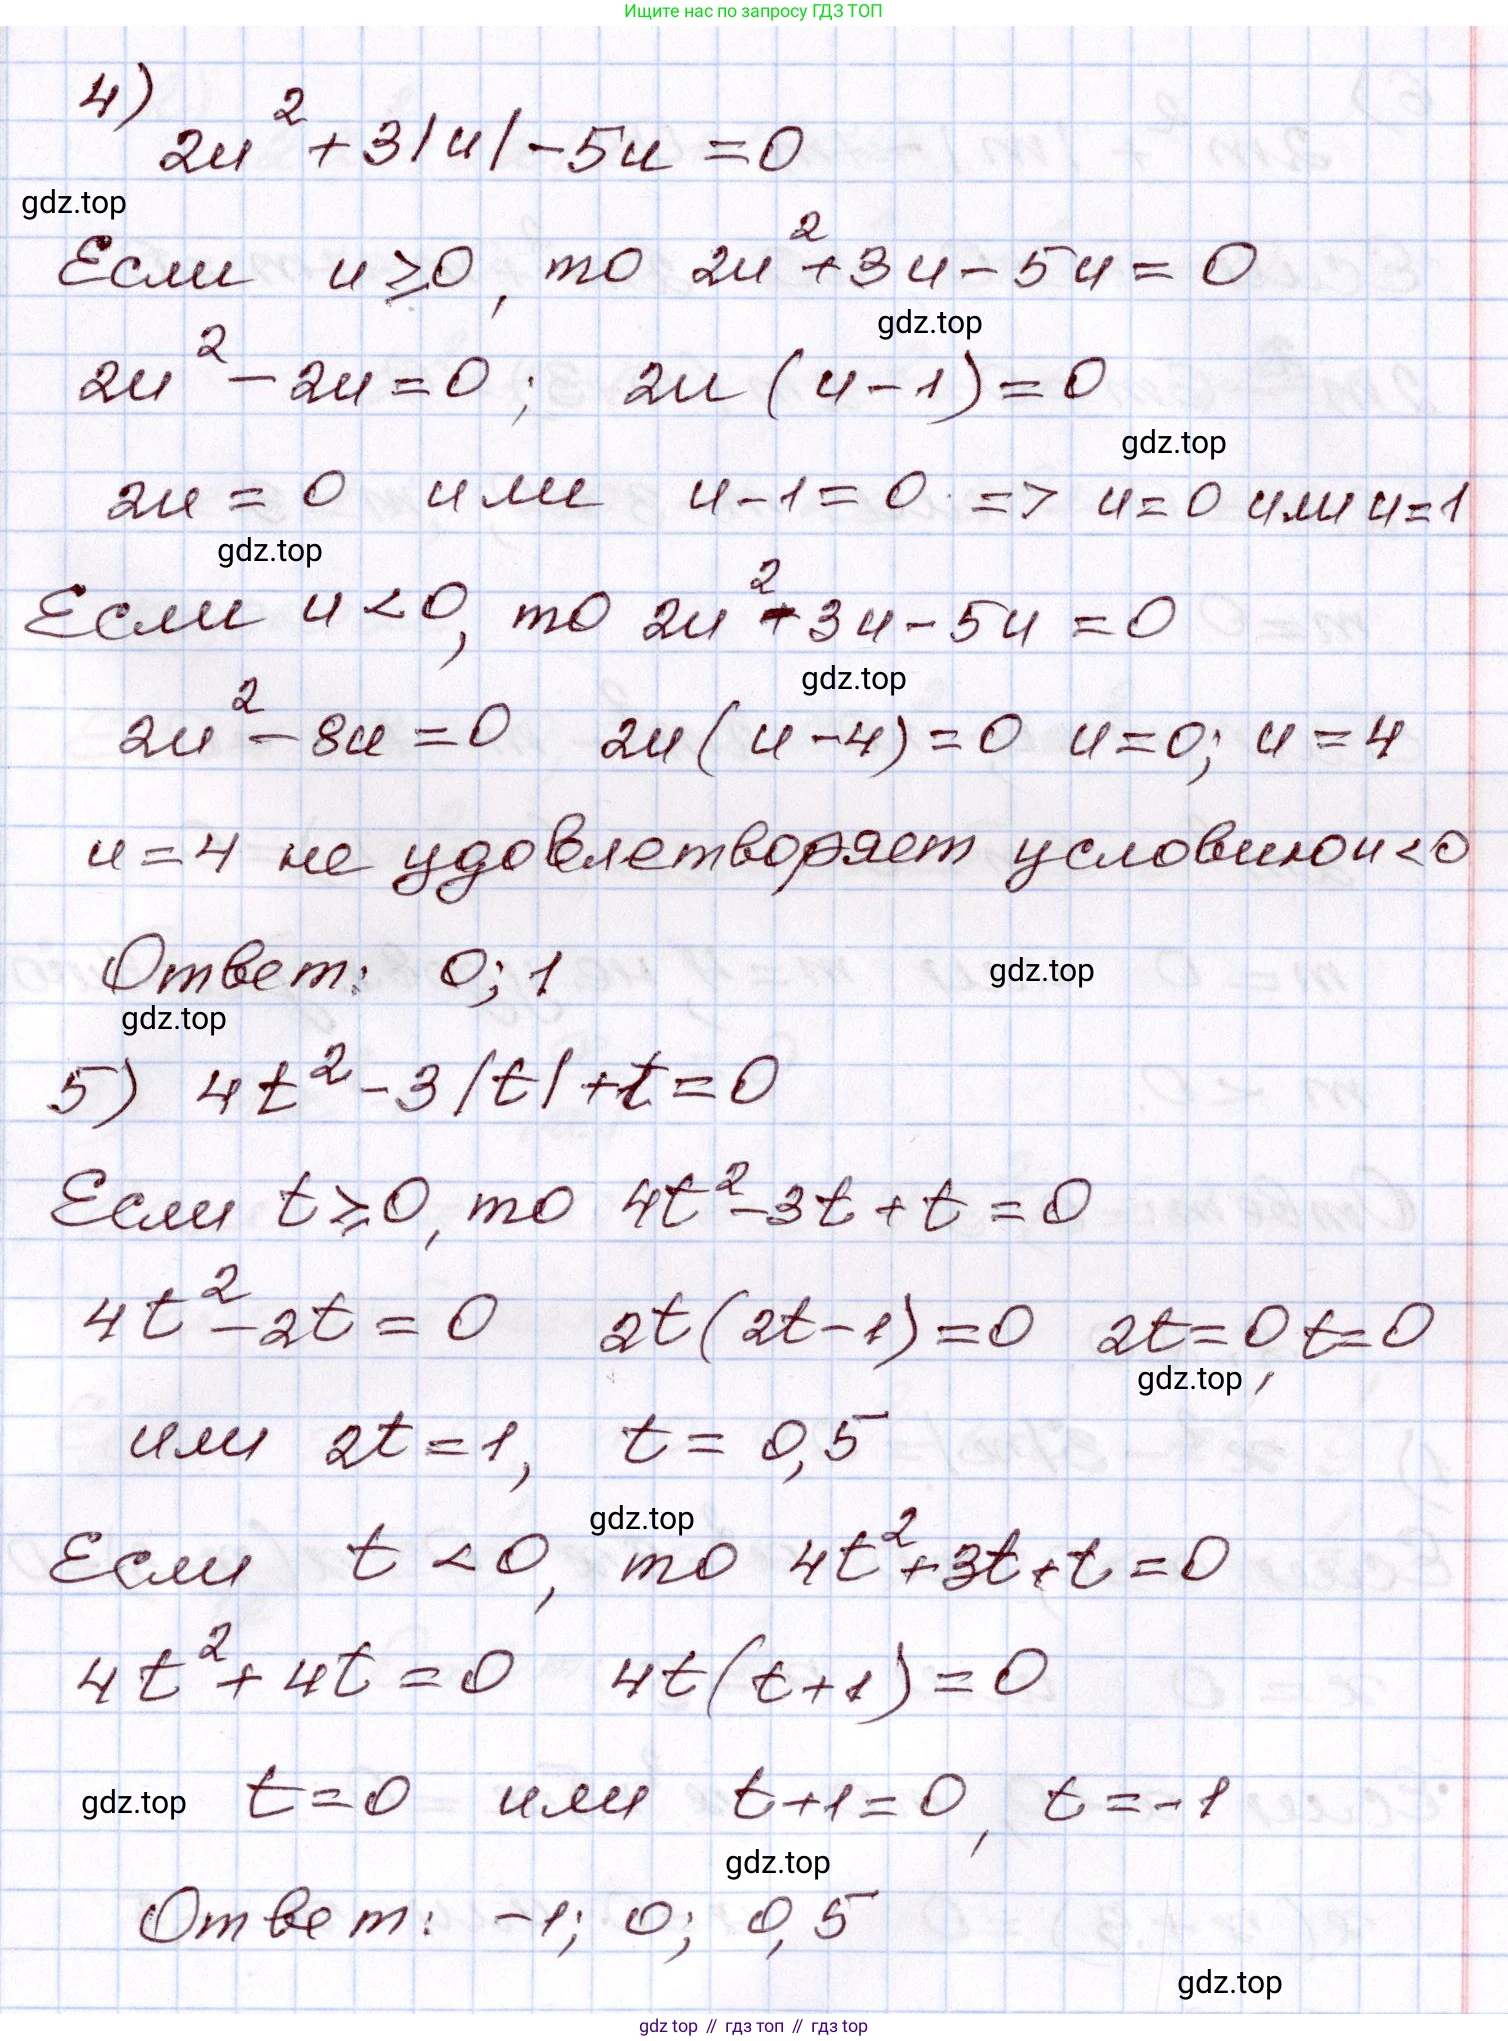 Ищите нас по запросу ГДЗ ТОП
4)
2u² + 3|u| - 5u = 0
gdz.top
Если u ≥ 0, то 2u² + 3u - 5u = 0
gdz.top
2u² - 2u = 0; 2u (u - 1) = 0
gdz.top
2u = 0 или u - 1 = 0 => u = 0 или u = 1
gdz.top
Если u < 0, то 2u² - 3u - 5u = 0
gdz.top
2u² - 8u = 0 2u (u - 4) = 0 u = 0; u = 4
u = 4 не удовлетворяет условию u < 0
Ответ: 0; 1
gdz.top
gdz.top
5) 4t² - 3|t| + t = 0
Если t ≥ 0, то 4t² - 3t + t = 0
4t² - 2t = 0 2t (2t - 1) = 0 2t = 0, t = 0
gdz.top
или 2t = 1, t = 0,5
gdz.top
Если t < 0, то 4t² + 3t + t = 0
4t² + 4t = 0 4t (t + 1) = 0
gdz.top t = 0 или t + 1 = 0, t = -1
gdz.top
Ответ: -1; 0; 0,5
gdz.top
gdz top // гдз топ // гдз top